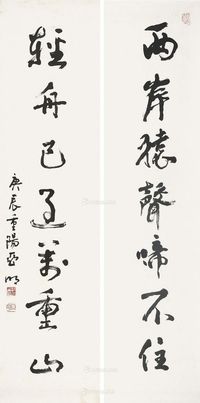 两岸猿聲啼不住
輕舟已過萬重山
庚辰重陽亞明